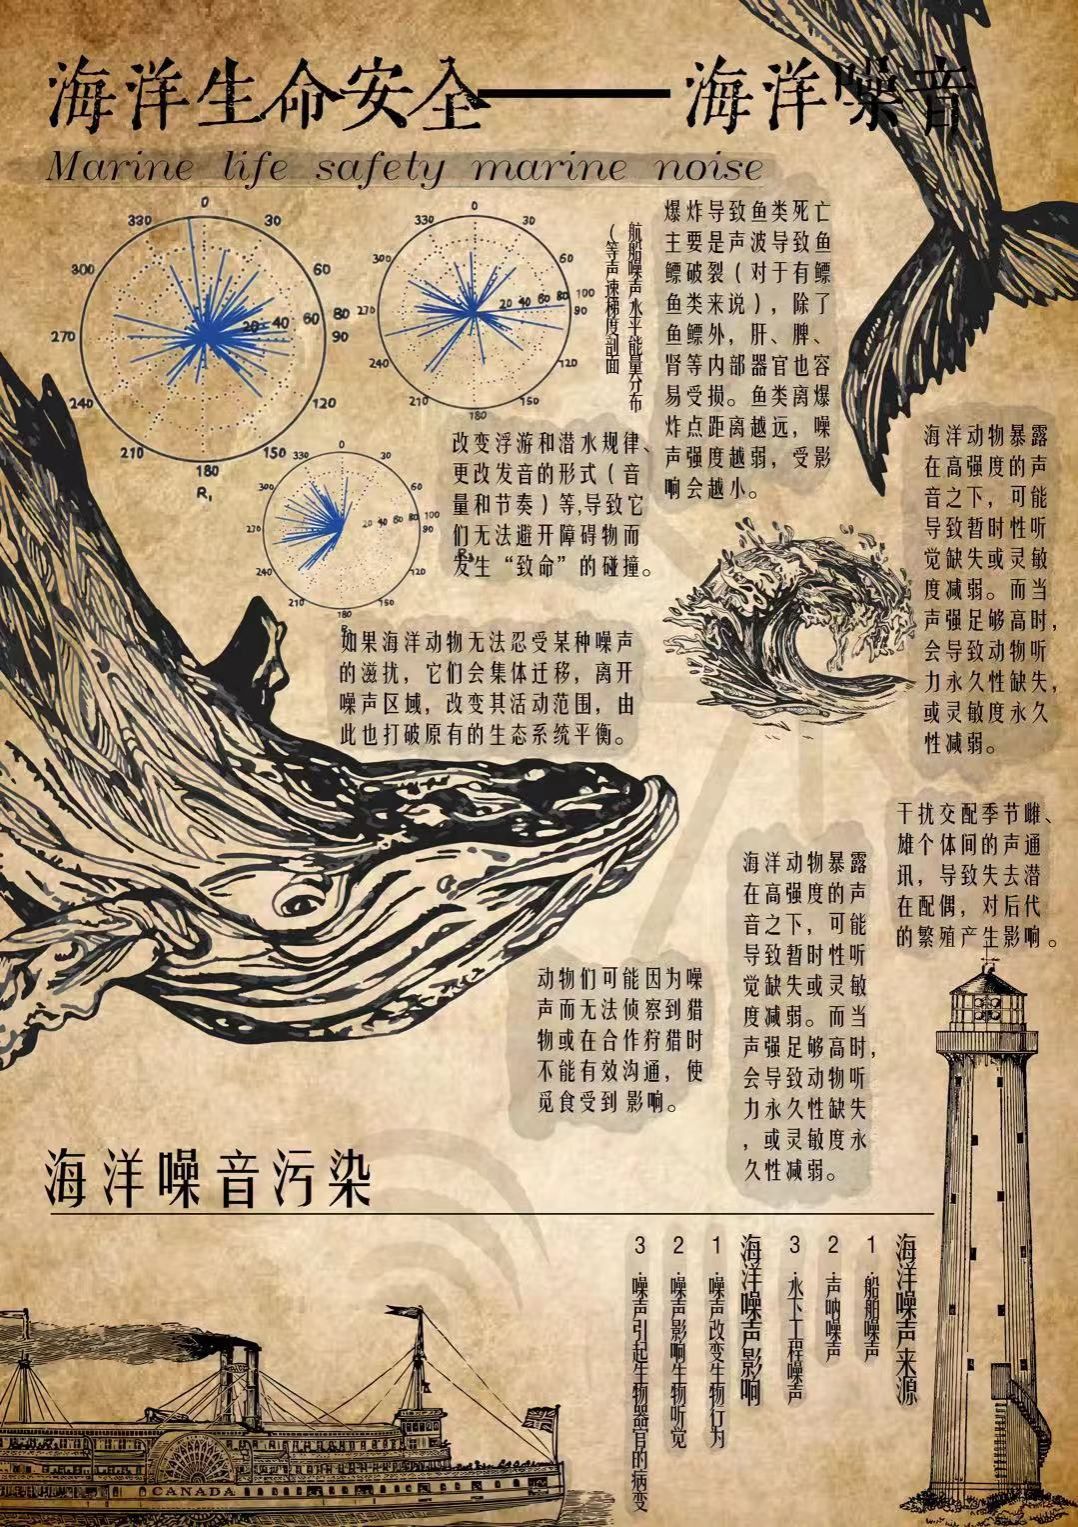 海洋生命安全——海洋噪音
Marine life safety marine noise
0
30
60
80
90
120
150
180
210
240
270
300
330
20
40
60
R₁
0
30
60
90
120
150
180
210
240
270
300
330
20 40 60 80 100
航船噪声水平能量分布
(等声速梯度剖面
爆炸导致鱼类死亡
主要是声波导致鱼
鳔破裂(对于有鳔
鱼类来说),除了
鱼鳔外,肝、脾、
肾等内部器官也容
易受损。鱼类离爆
炸点距离越远,噪
声强度越弱,受影
响会越小。
改变浮游和潜水规律、
更改发音的形式(音
量和节奏)等,导致它
们无法避开障碍物而
发生“致命”的碰撞。
0
30
60
90
120
150
180
210
240
270
300
330
20 40 60 80 100
如果海洋动物无法忍受某种噪声
的滋扰,它们会集体迁移,离开
噪声区域,改变其活动范围,由
此也打破原有的生态系统平衡。
海洋动物暴露
在高强度的声
音之下,可能
导致暂时性听
觉缺失或灵敏
度减弱。而当
声强足够高时,
会导致动物听
力永久性缺失,
或灵敏度永久
性减弱。
干扰交配季节雌、
雄个体间的声通
讯,导致失去潜
在配偶,对后代
的繁殖产生影响。
海洋动物暴露
在高强度的声
音之下,可能
导致暂时性听
觉缺失或灵敏
度减弱。而当
声强足够高时,
会导致动物听
力永久性缺失
,或灵敏度永
久性减弱。
动物们可能因为噪
声而无法侦察到猎
物或在合作狩猎时
不能有效沟通,使
觅食受到影响。
海洋噪音污染
海洋噪声来源
1.船舶噪声
2.声呐噪声
3.水下工程噪声
海洋噪声影响
1.噪声改变生物行为
2.噪声影响生物听觉
3.噪声引起生物器官的病变
CANADA